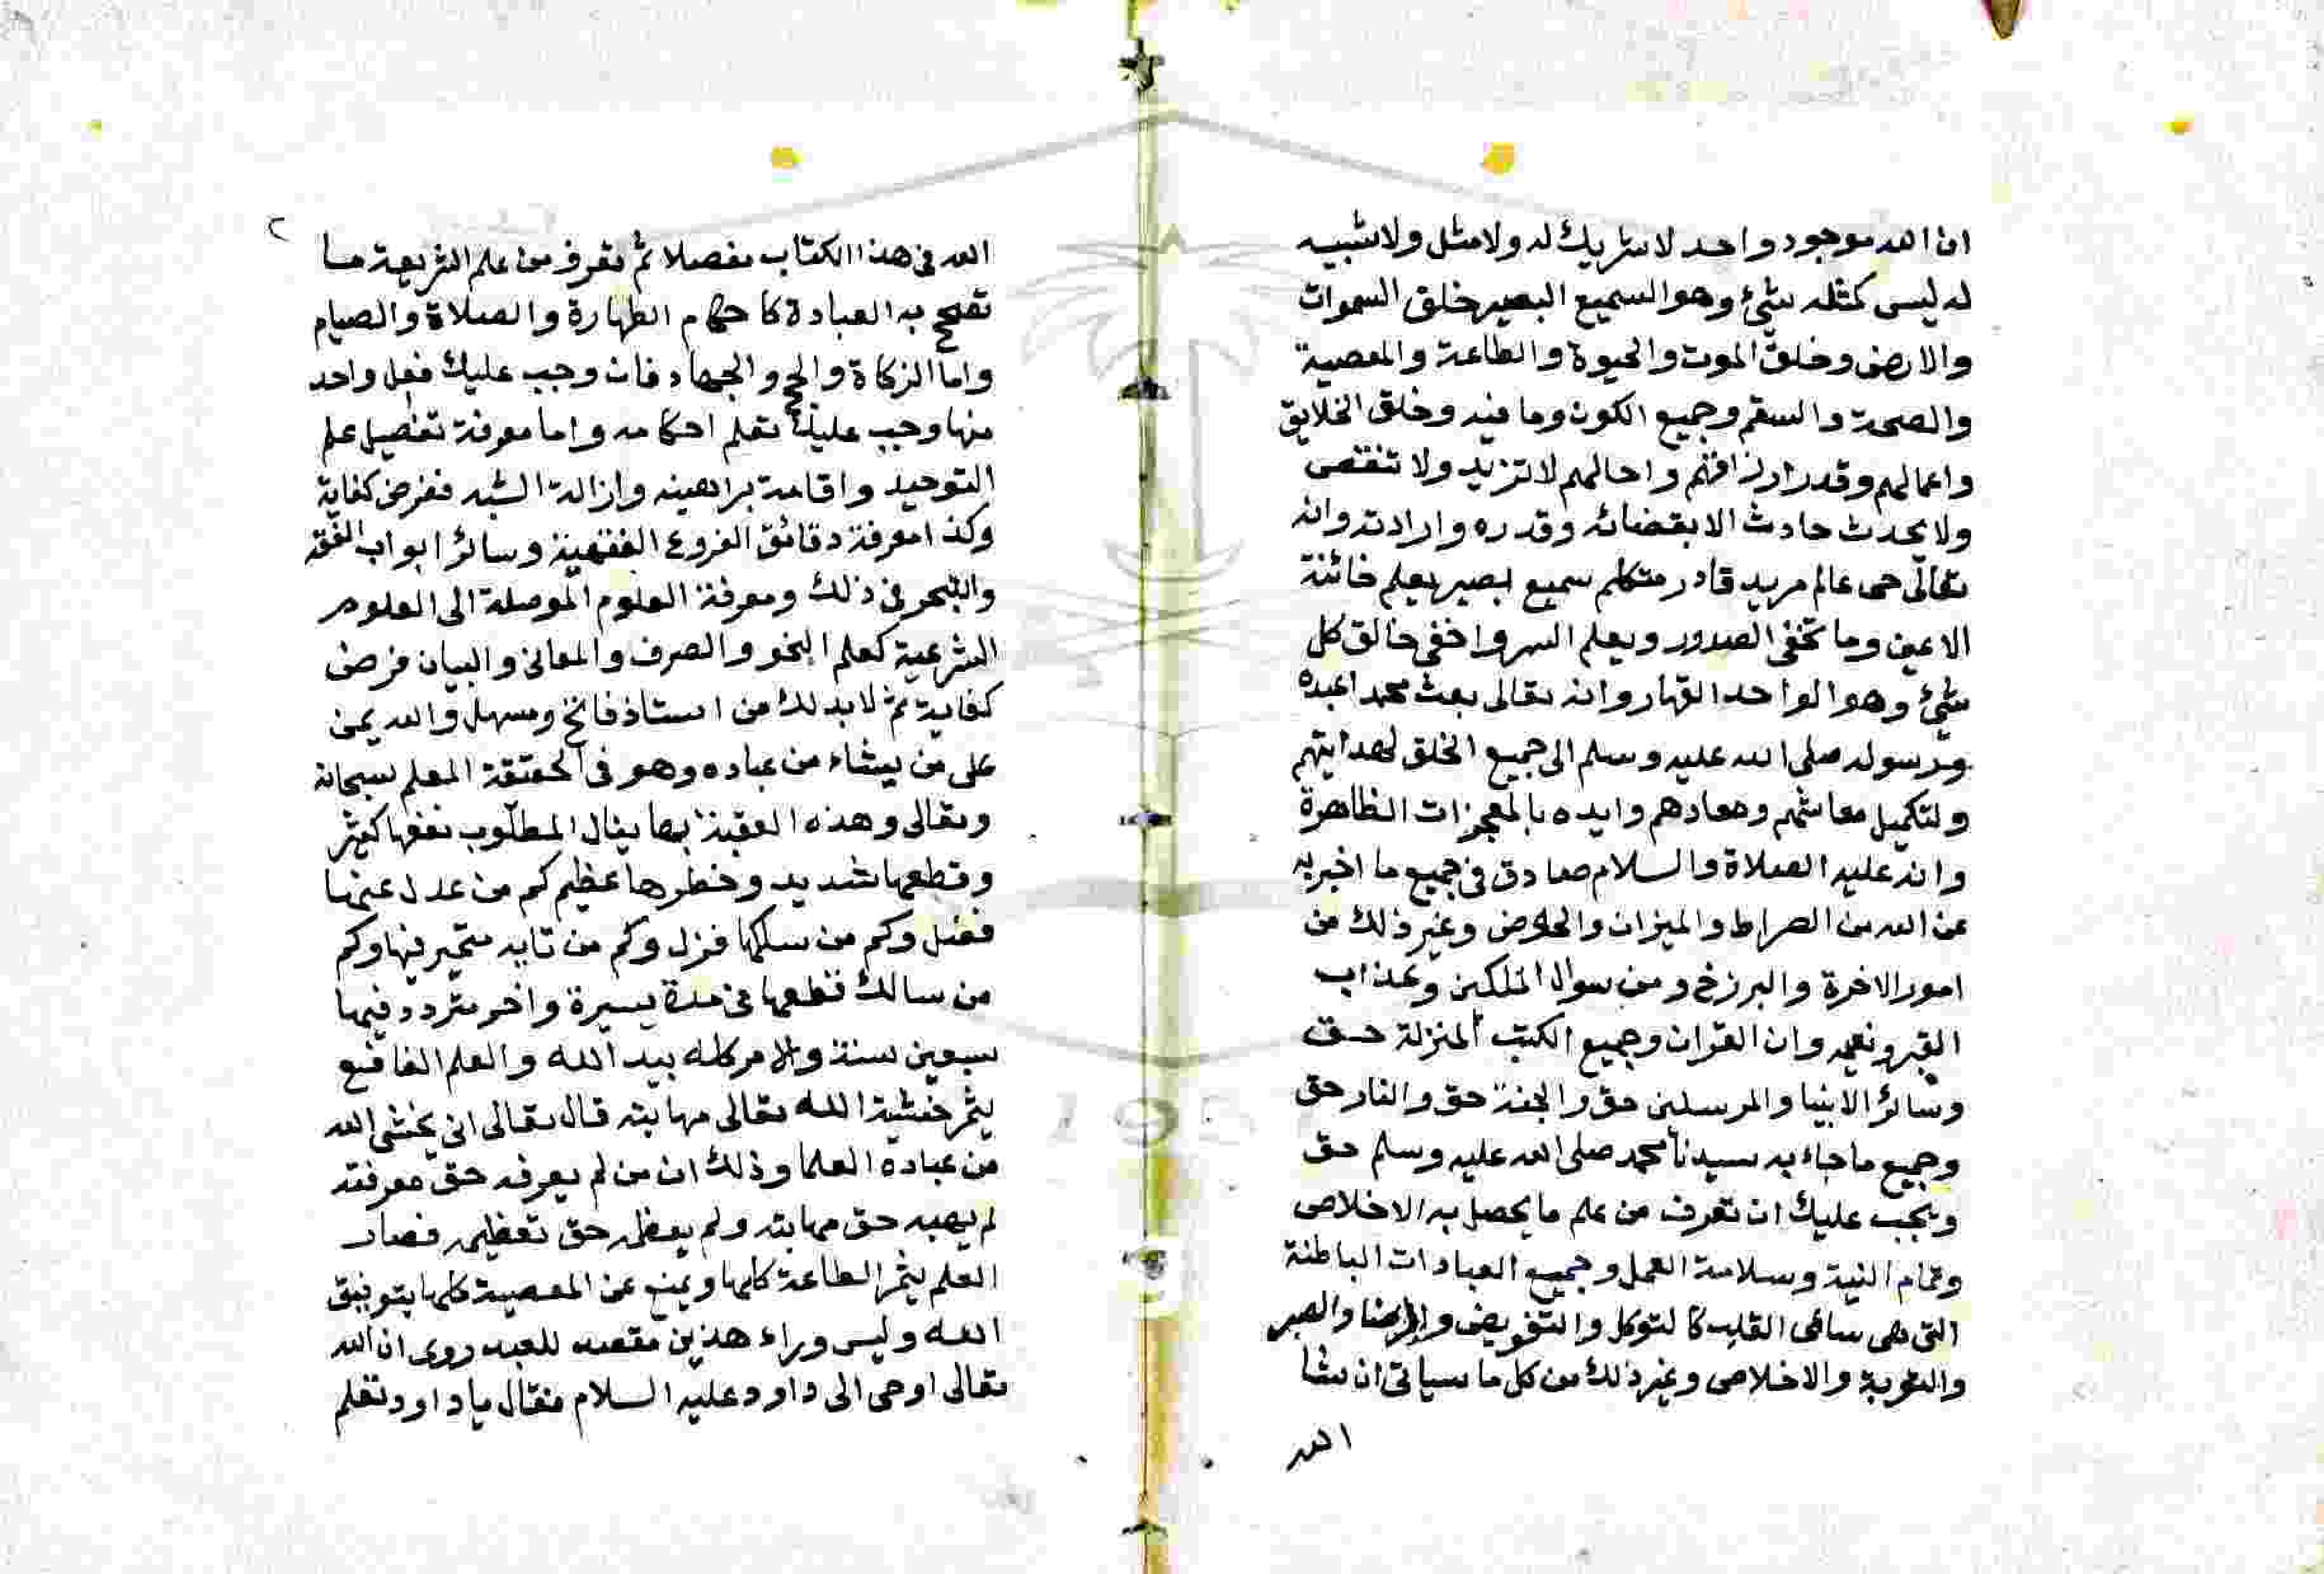 ان الله موجود واحد لا شريك له ولا مثل ولا شبيه
له ليس كمثله شئ وهو السميع البصير خلق السموات
والارض وخلق الموت والحيوة والطاعة والمعصية
والصحة والسقم وجميع الكون وما فيه وخلق الخلايق
واعمالهم وقدر ارزاقهم واجالهم لا تزيد ولا تنقص
ولا يحدث حادث الا بقضائه وقدره وارادته وانه
تعالى حى عالم مريد قادر متكلم سميع بصير يعلم خائنة
الاعين وما تخفى الصدور ويعلم السر واخفى خالق كل
شئ وهو الواحد القهار وانه تعالى بعث محمدا عبده
ورسوله صلى الله عليه وسلم الى جميع الخلق لهدايتهم
ولتكميل معاشهم ومعادهم وايده بالمعجزات الظاهرة
وانه عليه الصلاة والسلام صادق فى جميع ما اخبر به
عن الله من الصراط والميزان والحوض وغير ذلك من
امور الاخرة والبرزخ ومن سوال الملكين وعذاب
القبر ونعيمه وان القران وجميع الكتب المنزلة حق
وسائر الانبيا والمرسلين حق والجنة حق والنار حق
وجميع ما جاء به سيدنا محمد صلى الله عليه وسلم حق
ويجب عليك ان تعرف من علم ما يحصل به الاخلاص
وتمام النية وسلامة العمل وجميع العبادات الباطنة
التى هى ساعى القلب كالتوكل والتفويض والرضا والصبر
والتوبة والاخلاص وغير ذلك من كل ما سياتى ان شا
الله
٢
الله فى هذا الكتاب مفصلا ثم تعرف من علم الشريعة ما
تصح به العبادة كاحكام الطهارة والصلاة والصيام
واما الزكاة والحج والجهاد فان وجب عليك فعل واحد
منها وجب عليك تعلم احكامه واما معرفة تفصيل علم
التوحيد واقامة براهينه وازالة الشبه ففرض كفاية
وكذا معرفة دقائق الفروع الفقهية وسائر ابواب الفقه
والتبحر فى ذلك ومعرفة العلوم الموصلة الى العلوم
الشرعية كعلم النحو والصرف والمعانى والبيان فرض
كفاية ثم لا بد لك من استاذ فاتح ومسهل والله يمن
على من يشاء من عباده وهو فى الحقيقة المعلم سبحانه
وتعالى وهذه العقبة بها ينال المطلوب نفعها كثير
وقطعها شديد وخطرها عظيم كم من عدل عنها
فضل وكم من سلكها فزل وكم من تايه متحير فيها وكم
من سالك قطعها فى مدة يسيرة واخر متردد فيها
سبعين سنة والامر كله بيد الله والعلم النافع
يثمر خشية الله تعالى مهابته قال تعالى انى يخشى الله
من عباده العلما وذلك ان من لم يعرفه حق معرفته
لم يهبه حق مهابته ولم يعظمه حق تعظيمه فصار
العلم يثمر الطاعة كلها ويمنع عن المعصية كلها بتوفيق
الله وليس وراء هذين مقصد للعبد روى ان الله
تعالى اوحى الى داود عليه السلام فقال يا داود تعلم